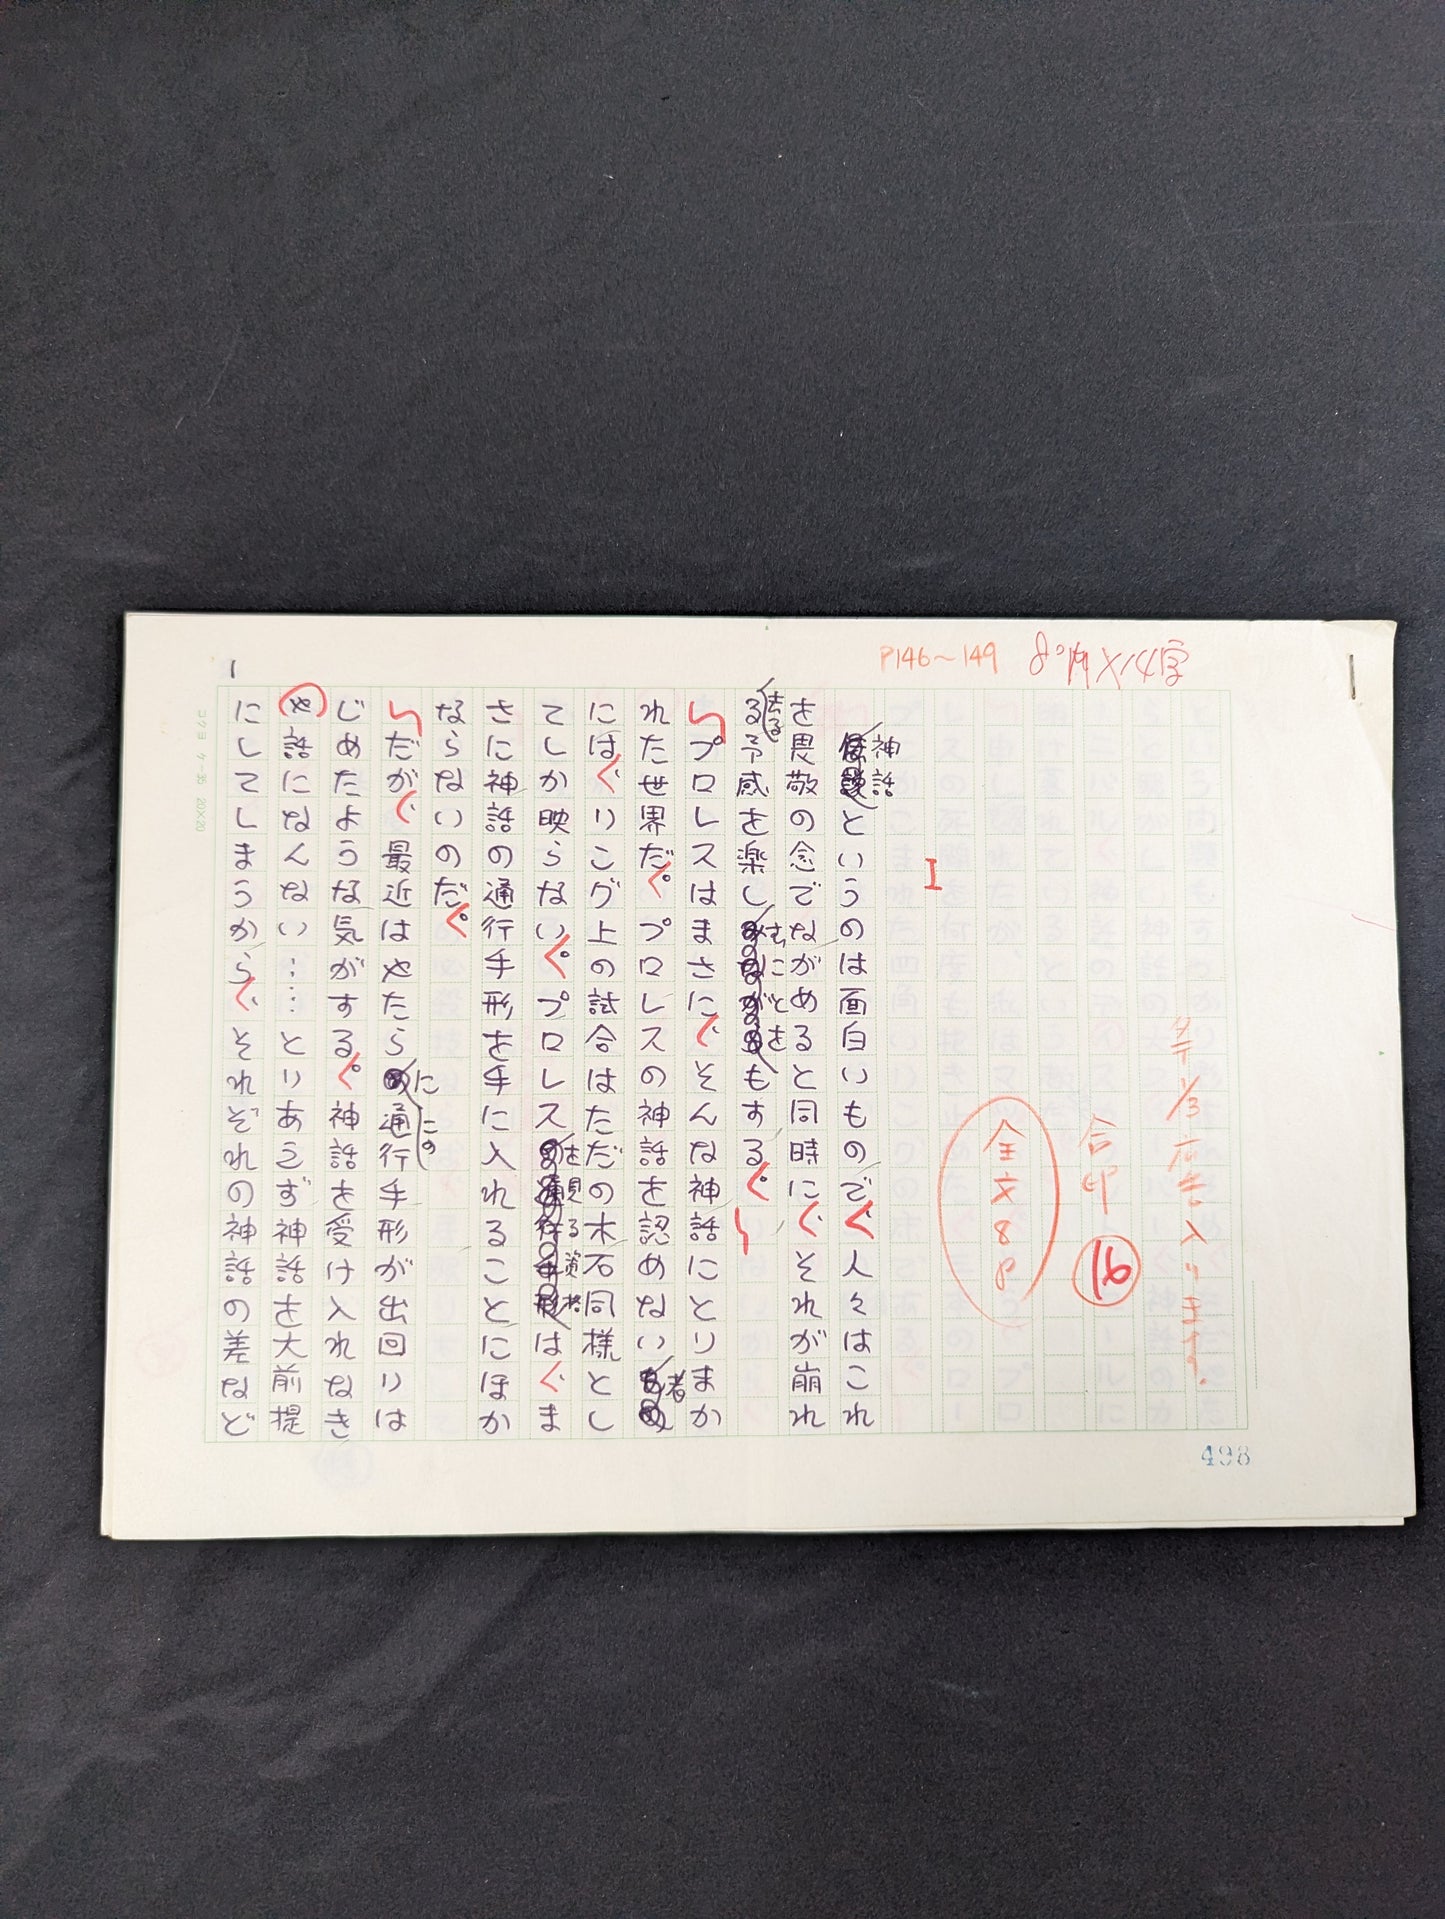 P146〜149
全文8P
合印
16
I
神話というのは面白いもので、人々はこれ
を畏敬の念でながめると同時に、それが崩れ
去る予感を楽しむことをもする。
プロレスはまさに、そんな神話にとりまか
れた世界だ。プロレスの神話を認めない者
には、リング上の試合はただの木石同様とし
てしか映らない。プロレスを観る資格は、ま
さに神話の通行手形を手に入れることにほか
ならないのだ。
だが、最近はやたらにこの通行手形が出回りは
じめたような気がする。神話を受け入れなき
や話になんない……とりあえず神話を大前提
にしてしまうから、それぞれの神話の差など
1
コクヨ ケ-35 20×20
498